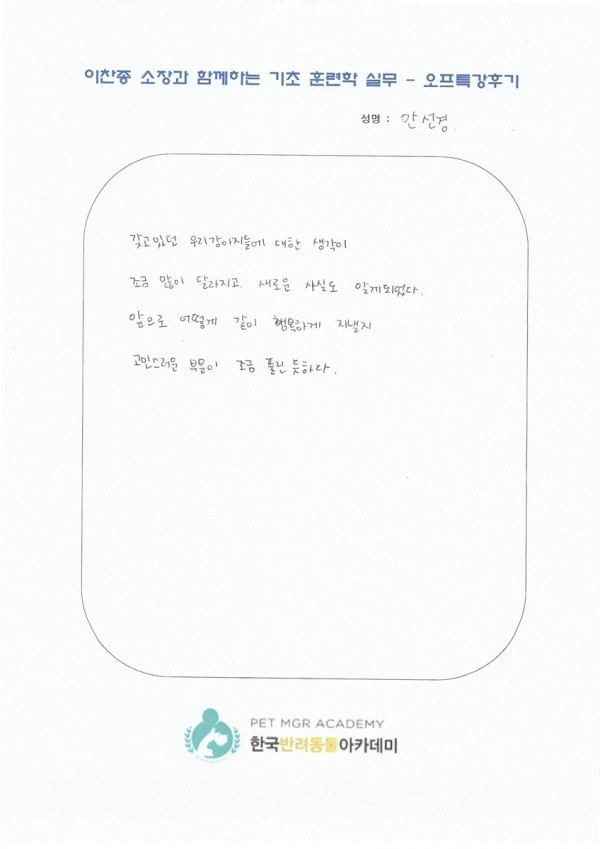 이찬종 소장과 함께하는 기초 훈련학 실무 - 오프특강후기
성명 : 안선경
갖고있던 우리강아지들에 대한 생각이
조금 많이 달라지고 새로운 사실도 알게되었다.
앞으로 어떻게 같이 행복하게 지낼지
고민스러운 부분이 조금 풀린 듯하다.
PET MGR ACADEMY
한국반려동물아카데미